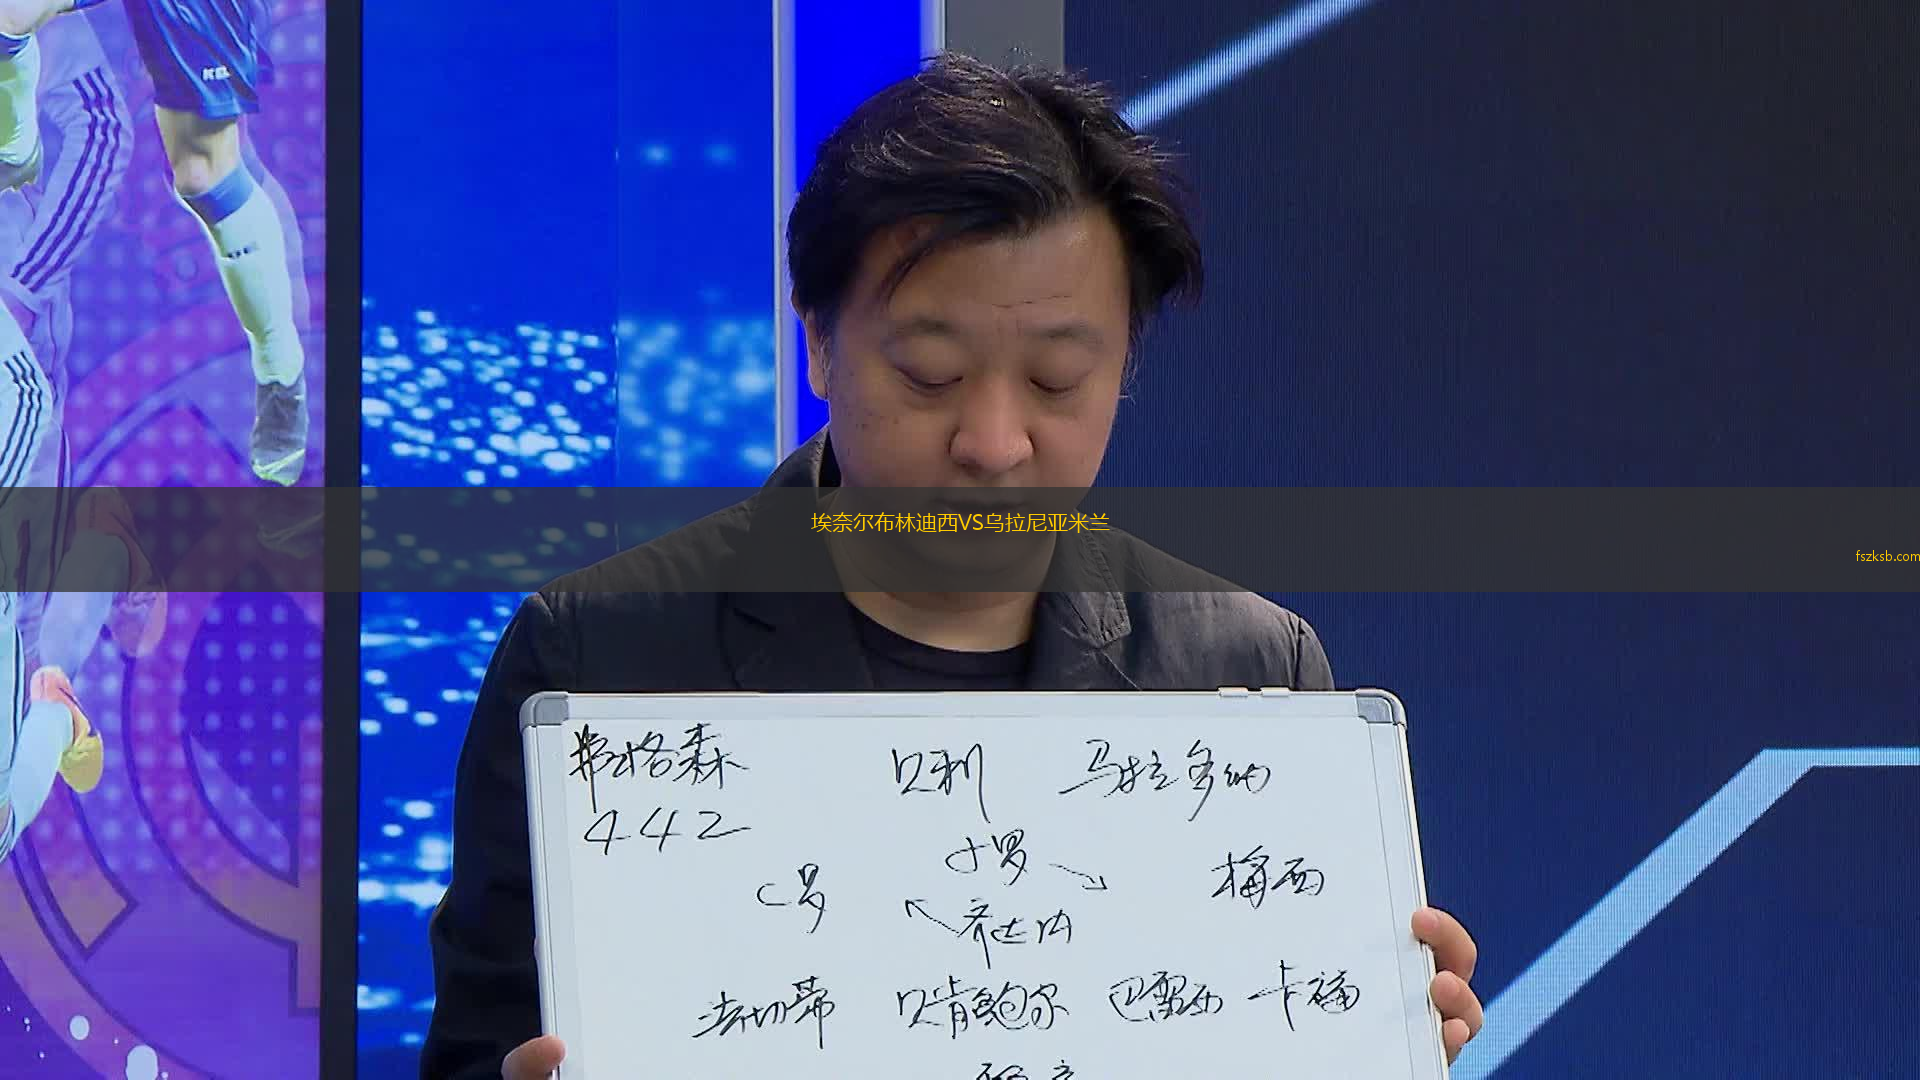 KEL
埃奈尔布林迪西VS乌拉尼亚米兰
fszksb.com
弗格森 贝利 马拉多纳
442
小罗
C罗 梅西
齐达内
法切蒂 贝肯鲍尔 巴雷西 卡福